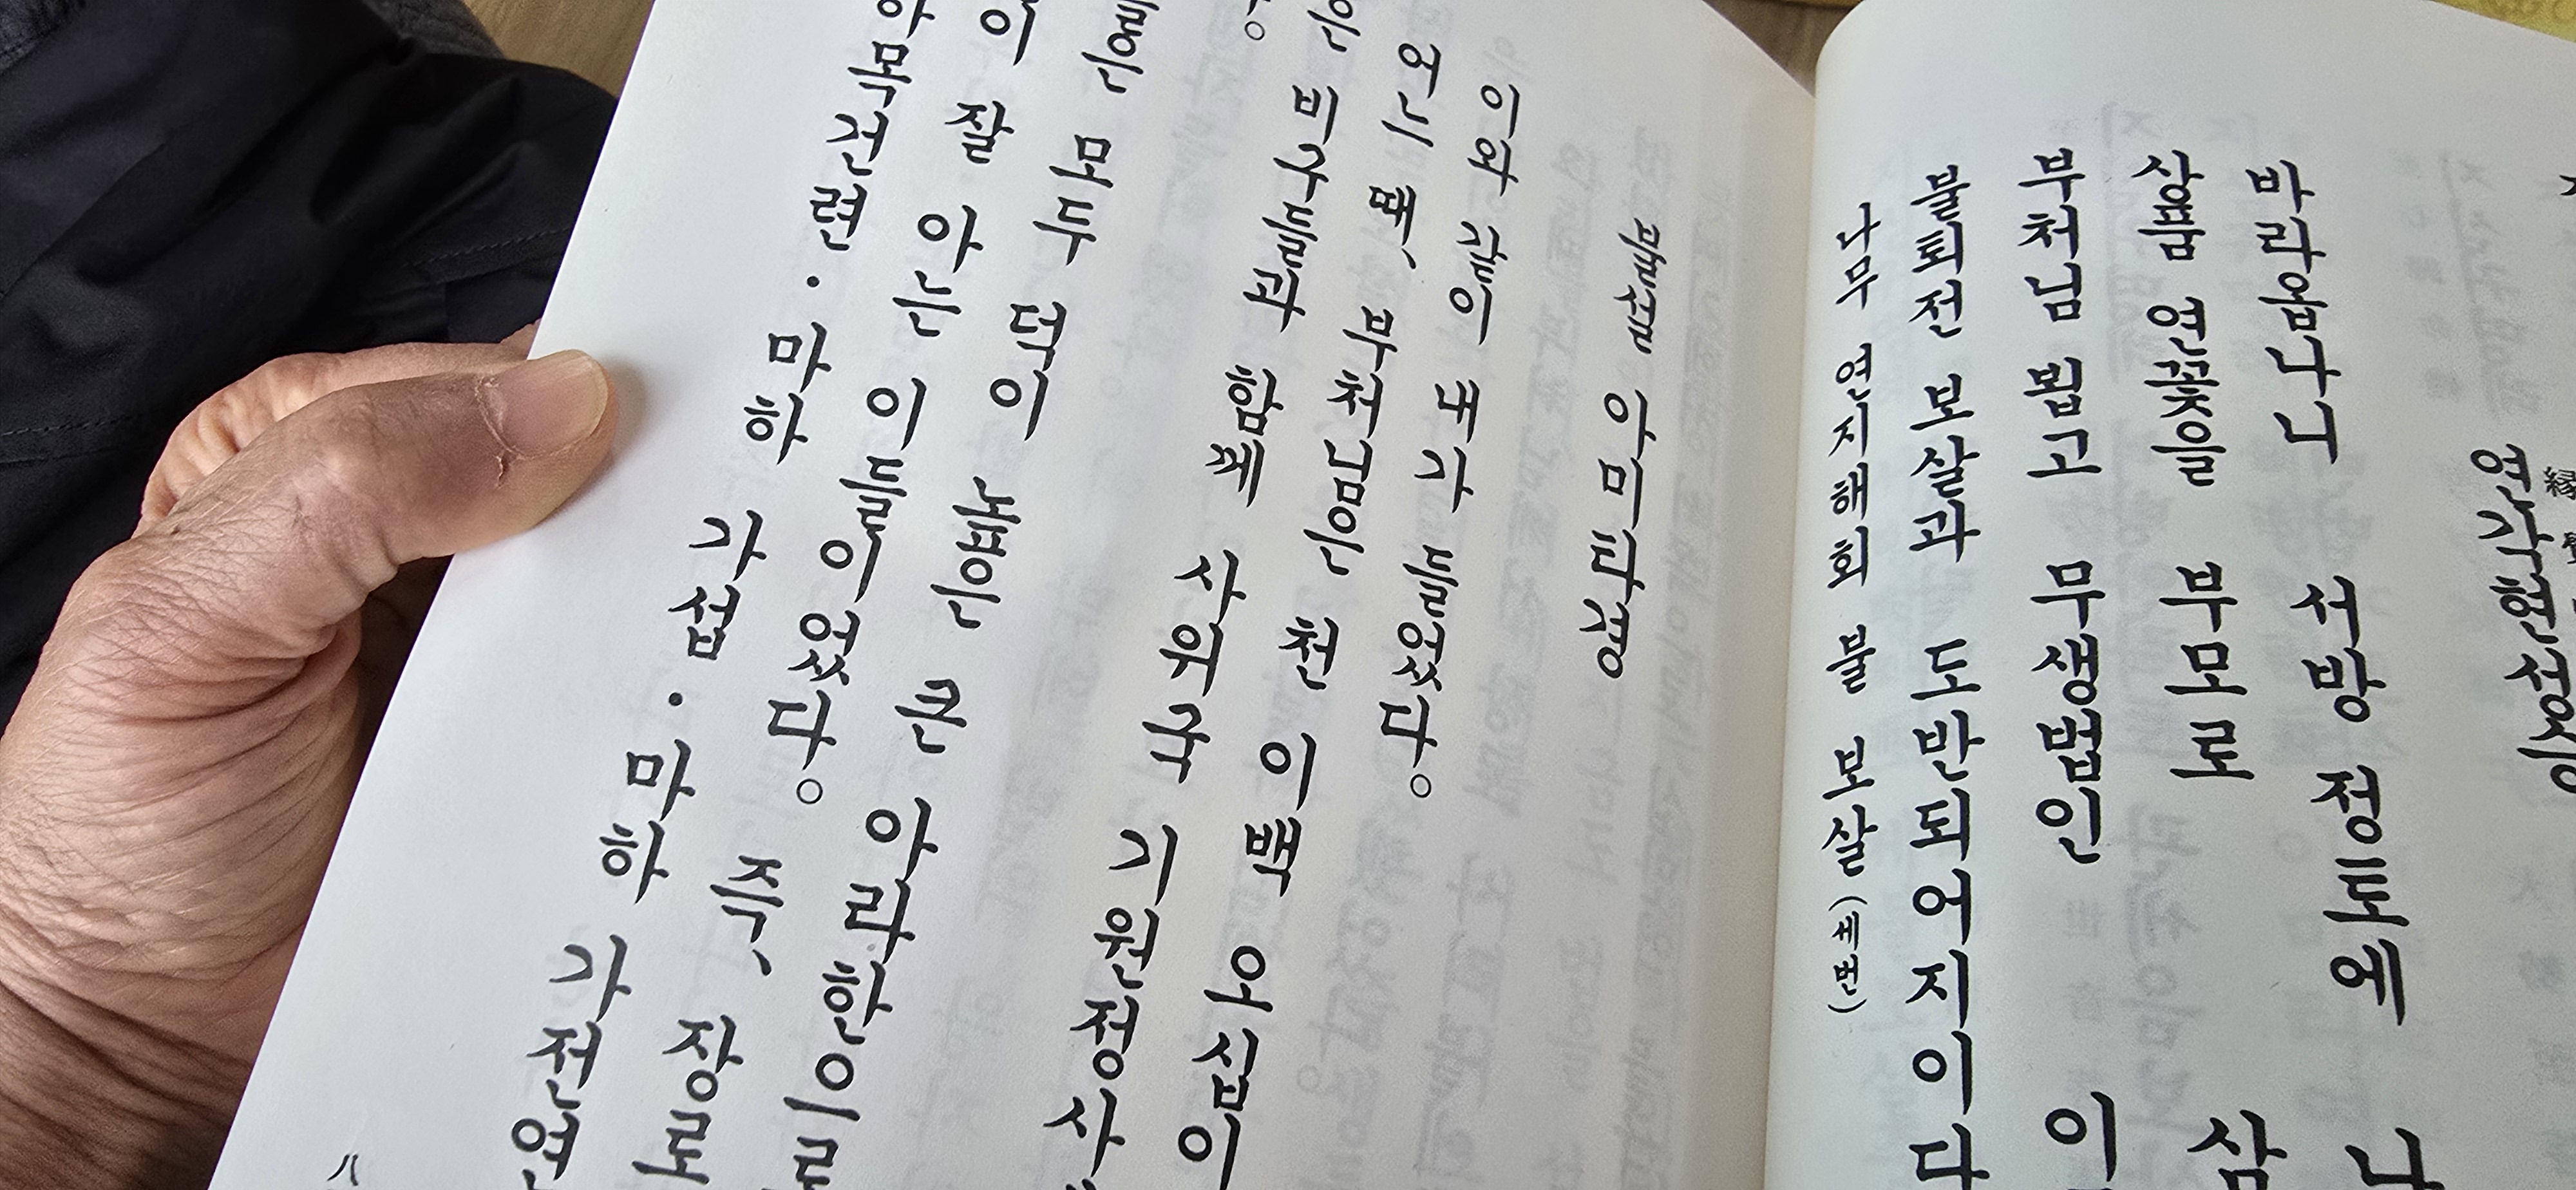 연각현성
바라옵나니 서방 정토에 나
상품 연꽃을 부모로 삼
부처님 뵙고 무생법인 이
불퇴전 보살과 도반되어지이다
나무 연지해회 불 보살 (세 번)
불설 아미타경
이와 같이 내가 들었다。
어느 때, 부처님은 천 이백 오십이
은 비구들과 함께 사위국 기원정사
。
들은 모두 덕이 높은 큰 아라한으로
이 잘 아는 이들이었다。 즉, 장로
하목건련 · 마하 가섭 · 마하 가전연
八